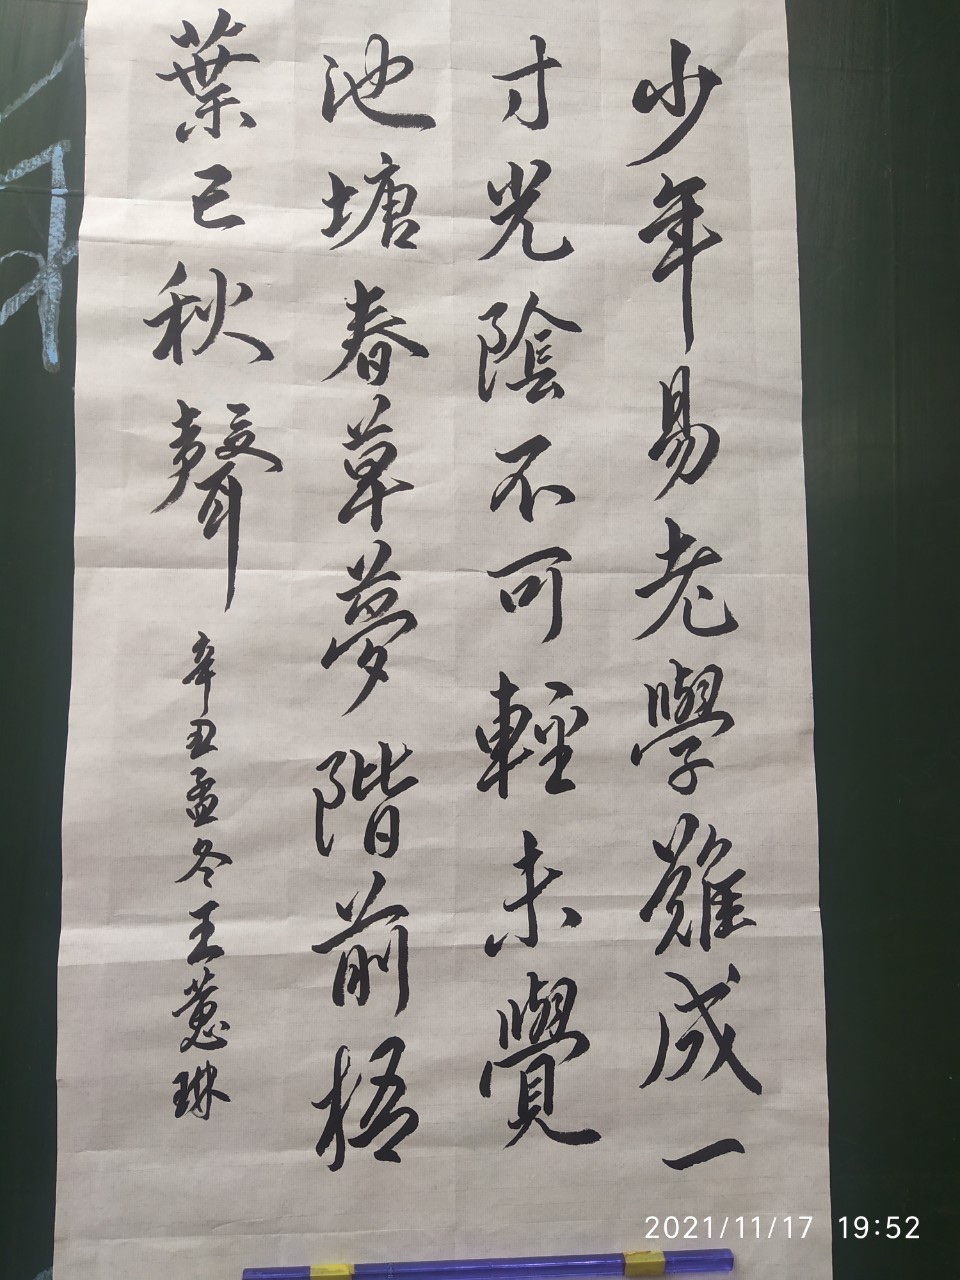 少年易老學難成一
寸光陰不可輕未覺
池塘春草夢階前梧
葉已秋聲
辛丑孟冬王蕙琳
2021/11/17 19:52